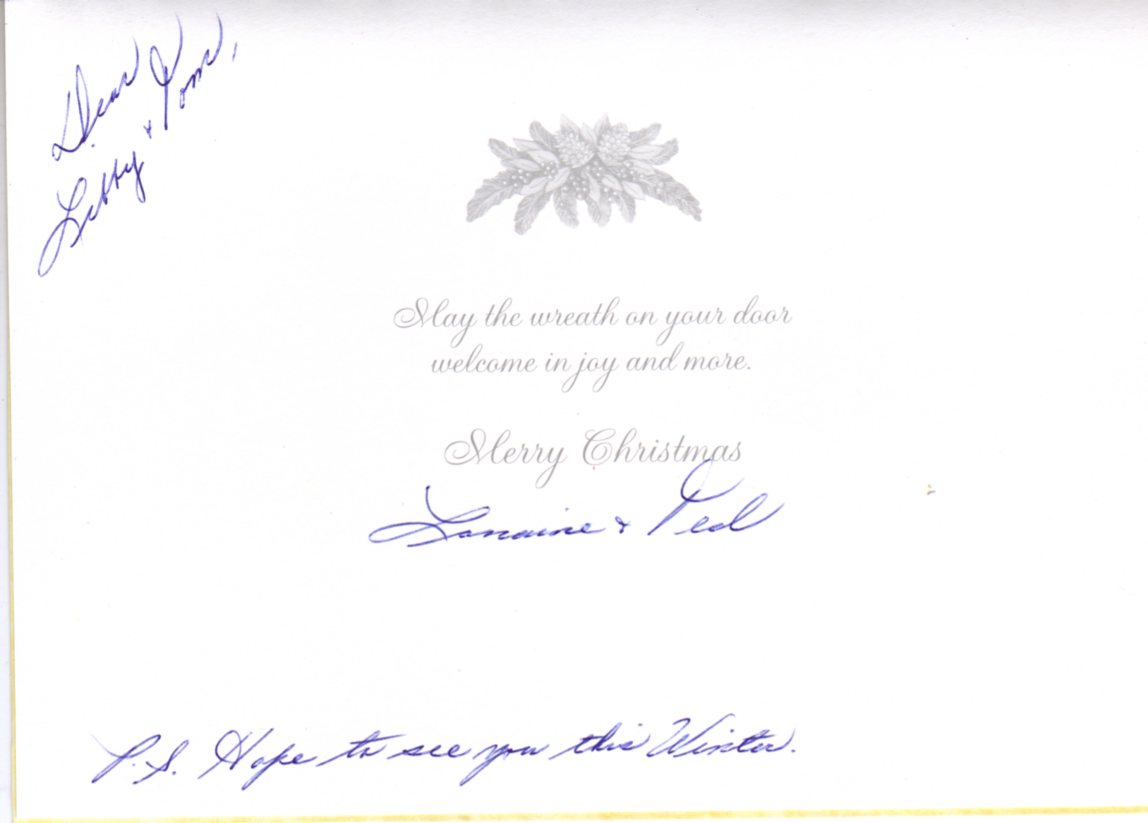 Dear
Libby & Tom,
May the wreath on your door
welcome in joy and more.
Merry Christmas
Lorraine & Ted
P.S. Hope to see you this Winter.